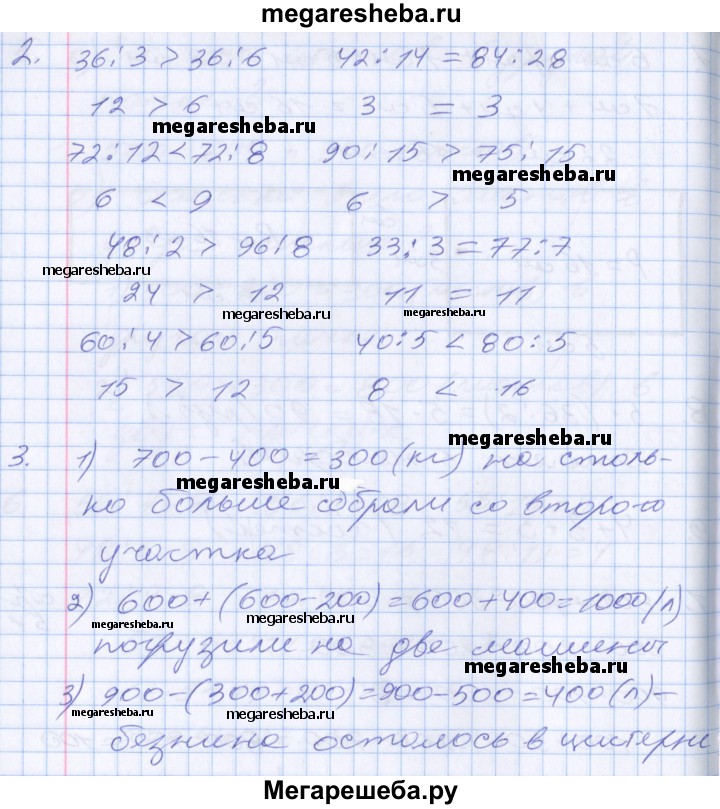 megaresheba.ru
2. 36:3 > 36:6 42:14 = 84:28
12 > 6 3 = 3
megaresheba.ru
72:12 < 72:8 90:15 > 75:15
megaresheba.ru
6 < 9 6 > 5
48:2 > 96:8 33:3 = 77:7
megaresheba.ru
24 > 12 11 = 11
megaresheba.ru megaresheba.ru
60:4 > 60:5 40:5 < 80:5
15 > 12 8 < 16
megaresheba.ru
3. 1) 700 - 400 = 300 (кг) на столь-
megaresheba.ru
ко больше собрали со второго
участка
2) 600 + (600 - 200) = 600 + 400 = 1000 (л)
megaresheba.ru megaresheba.ru
погрузили на две машины
megaresheba.ru
3) 900 - (300 + 200) = 900 - 500 = 400 (л) -
megaresheba.ru megaresheba.ru
бензина осталось в цистерне
Мегарешеба.ру